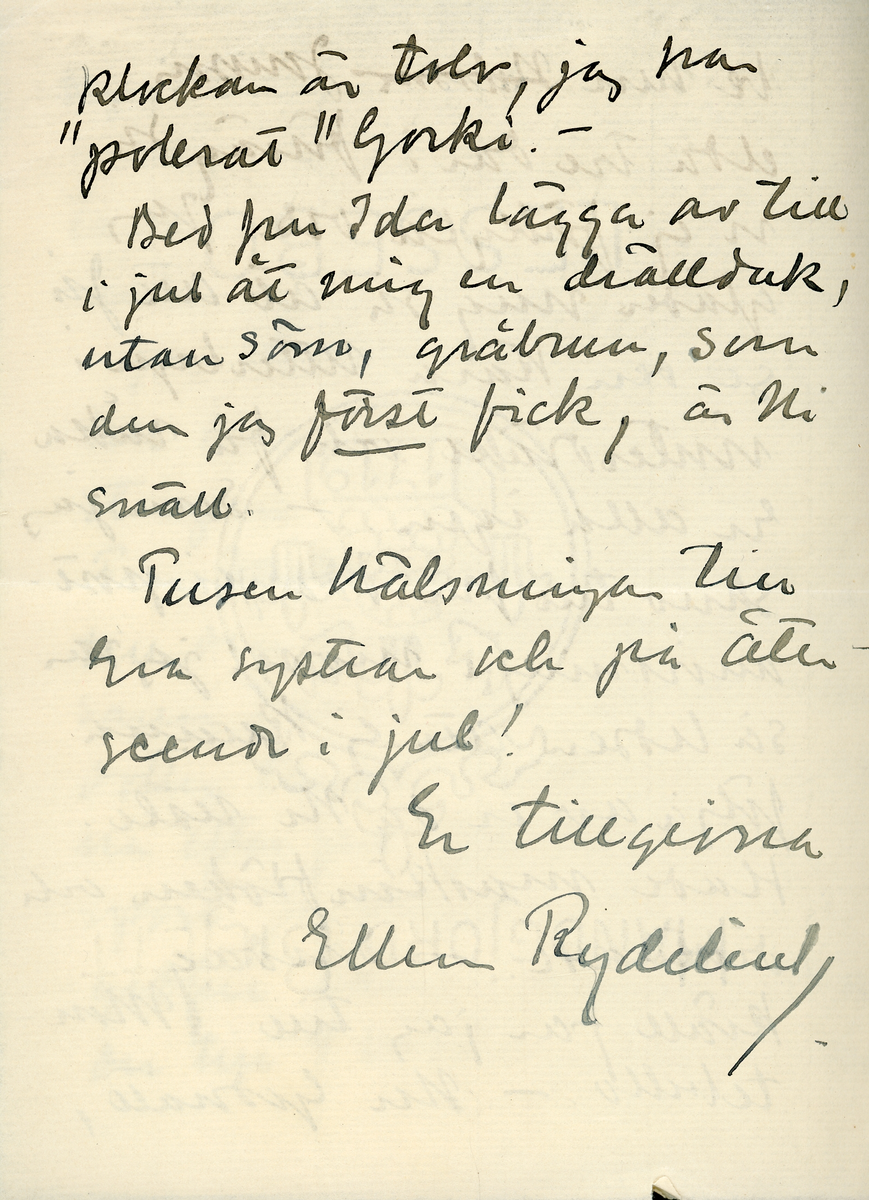 klockan är tolv, jag har
"polerat" Gorki. –
Bed fru Ida lägga av till
i jul åt mig en drällduk,
utan söm, gråbrun, som
den jag först fick, är Ni
snäll.
Tusen hälsningar till
Era systrar och på åter-
seende i jul!
Er tillgivna
Ellen Rydelius